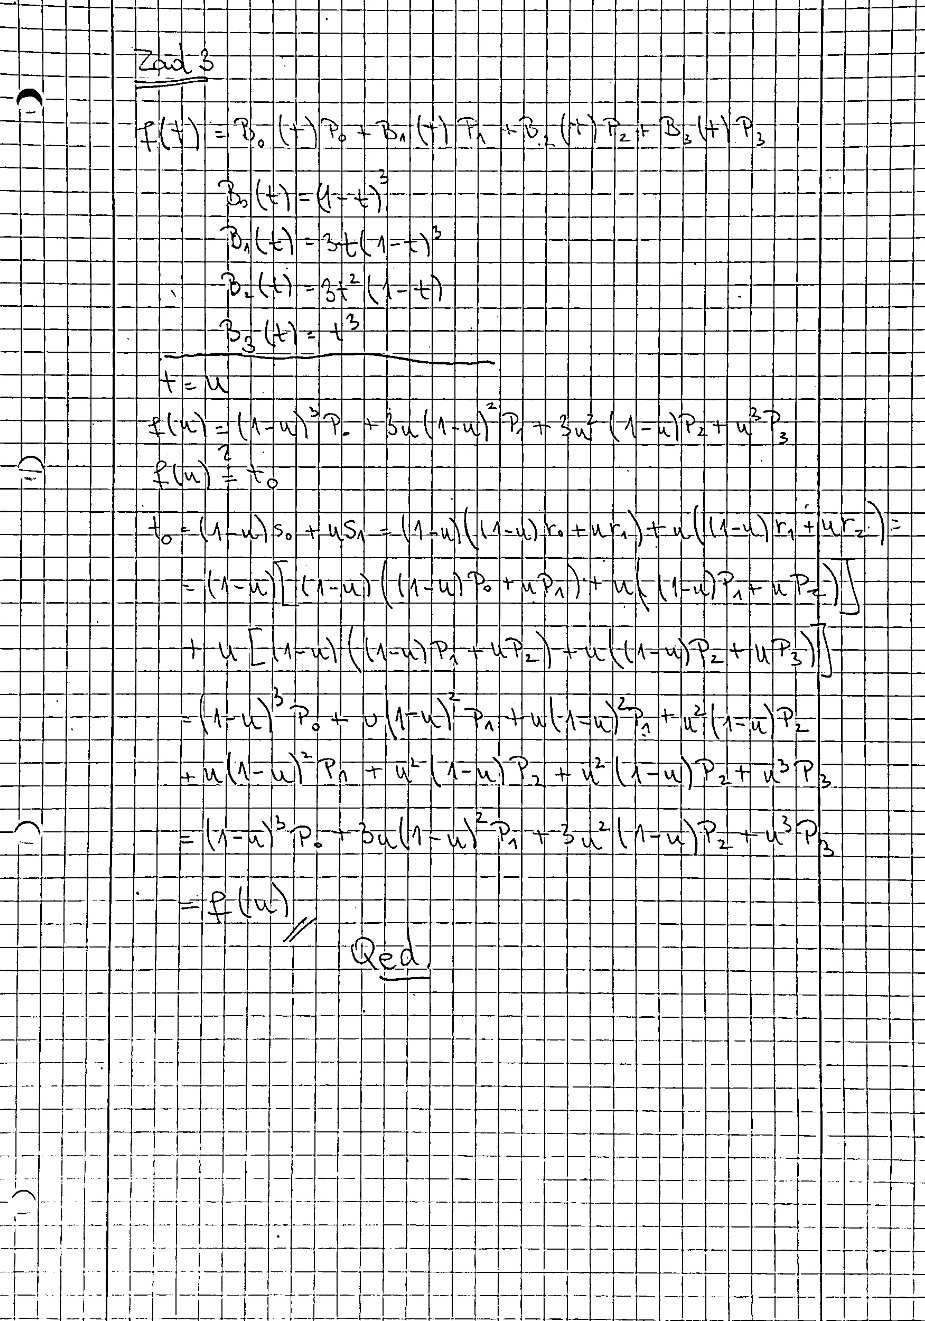 Zad 3
f(t) = B₀(t)P₀ + B₁(t)P₁ + B₂(t)P₂ + B₃(t)P₃
B₀(t) = (1-t)³
B₁(t) = 3t(1-t)³
B₂(t) = 3t²(1-t)
B₃(t) = t³
t = u
f(u) = (1-u)³P₀ + 3u(1-u)²P₁ + 3u²(1-u)P₂ + u³P₃
f(u) ≟ t₀
t₀ = (1-u)s₀ + us₁ = (1-u)((1-u)r₀ + ur₁) + u((1-u)r₁ + ur₂) =
= (1-u)[(1-u)((1-u)P₀ + uP₁) + u((1-u)P₁ + uP₂)]
+ u[(1-u)((1-u)P₁ + uP₂) + u((1-u)P₂ + uP₃)]
= (1-u)³P₀ + u(1-u)²P₁ + u(1-u)²P₁ + u²(1-u)P₂
+ u(1-u)²P₁ + u²(1-u)P₂ + u²(1-u)P₂ + u³P₃
= (1-u)³P₀ + 3u(1-u)²P₁ + 3u²(1-u)P₂ + u³P₃
= f(u)
Qed.